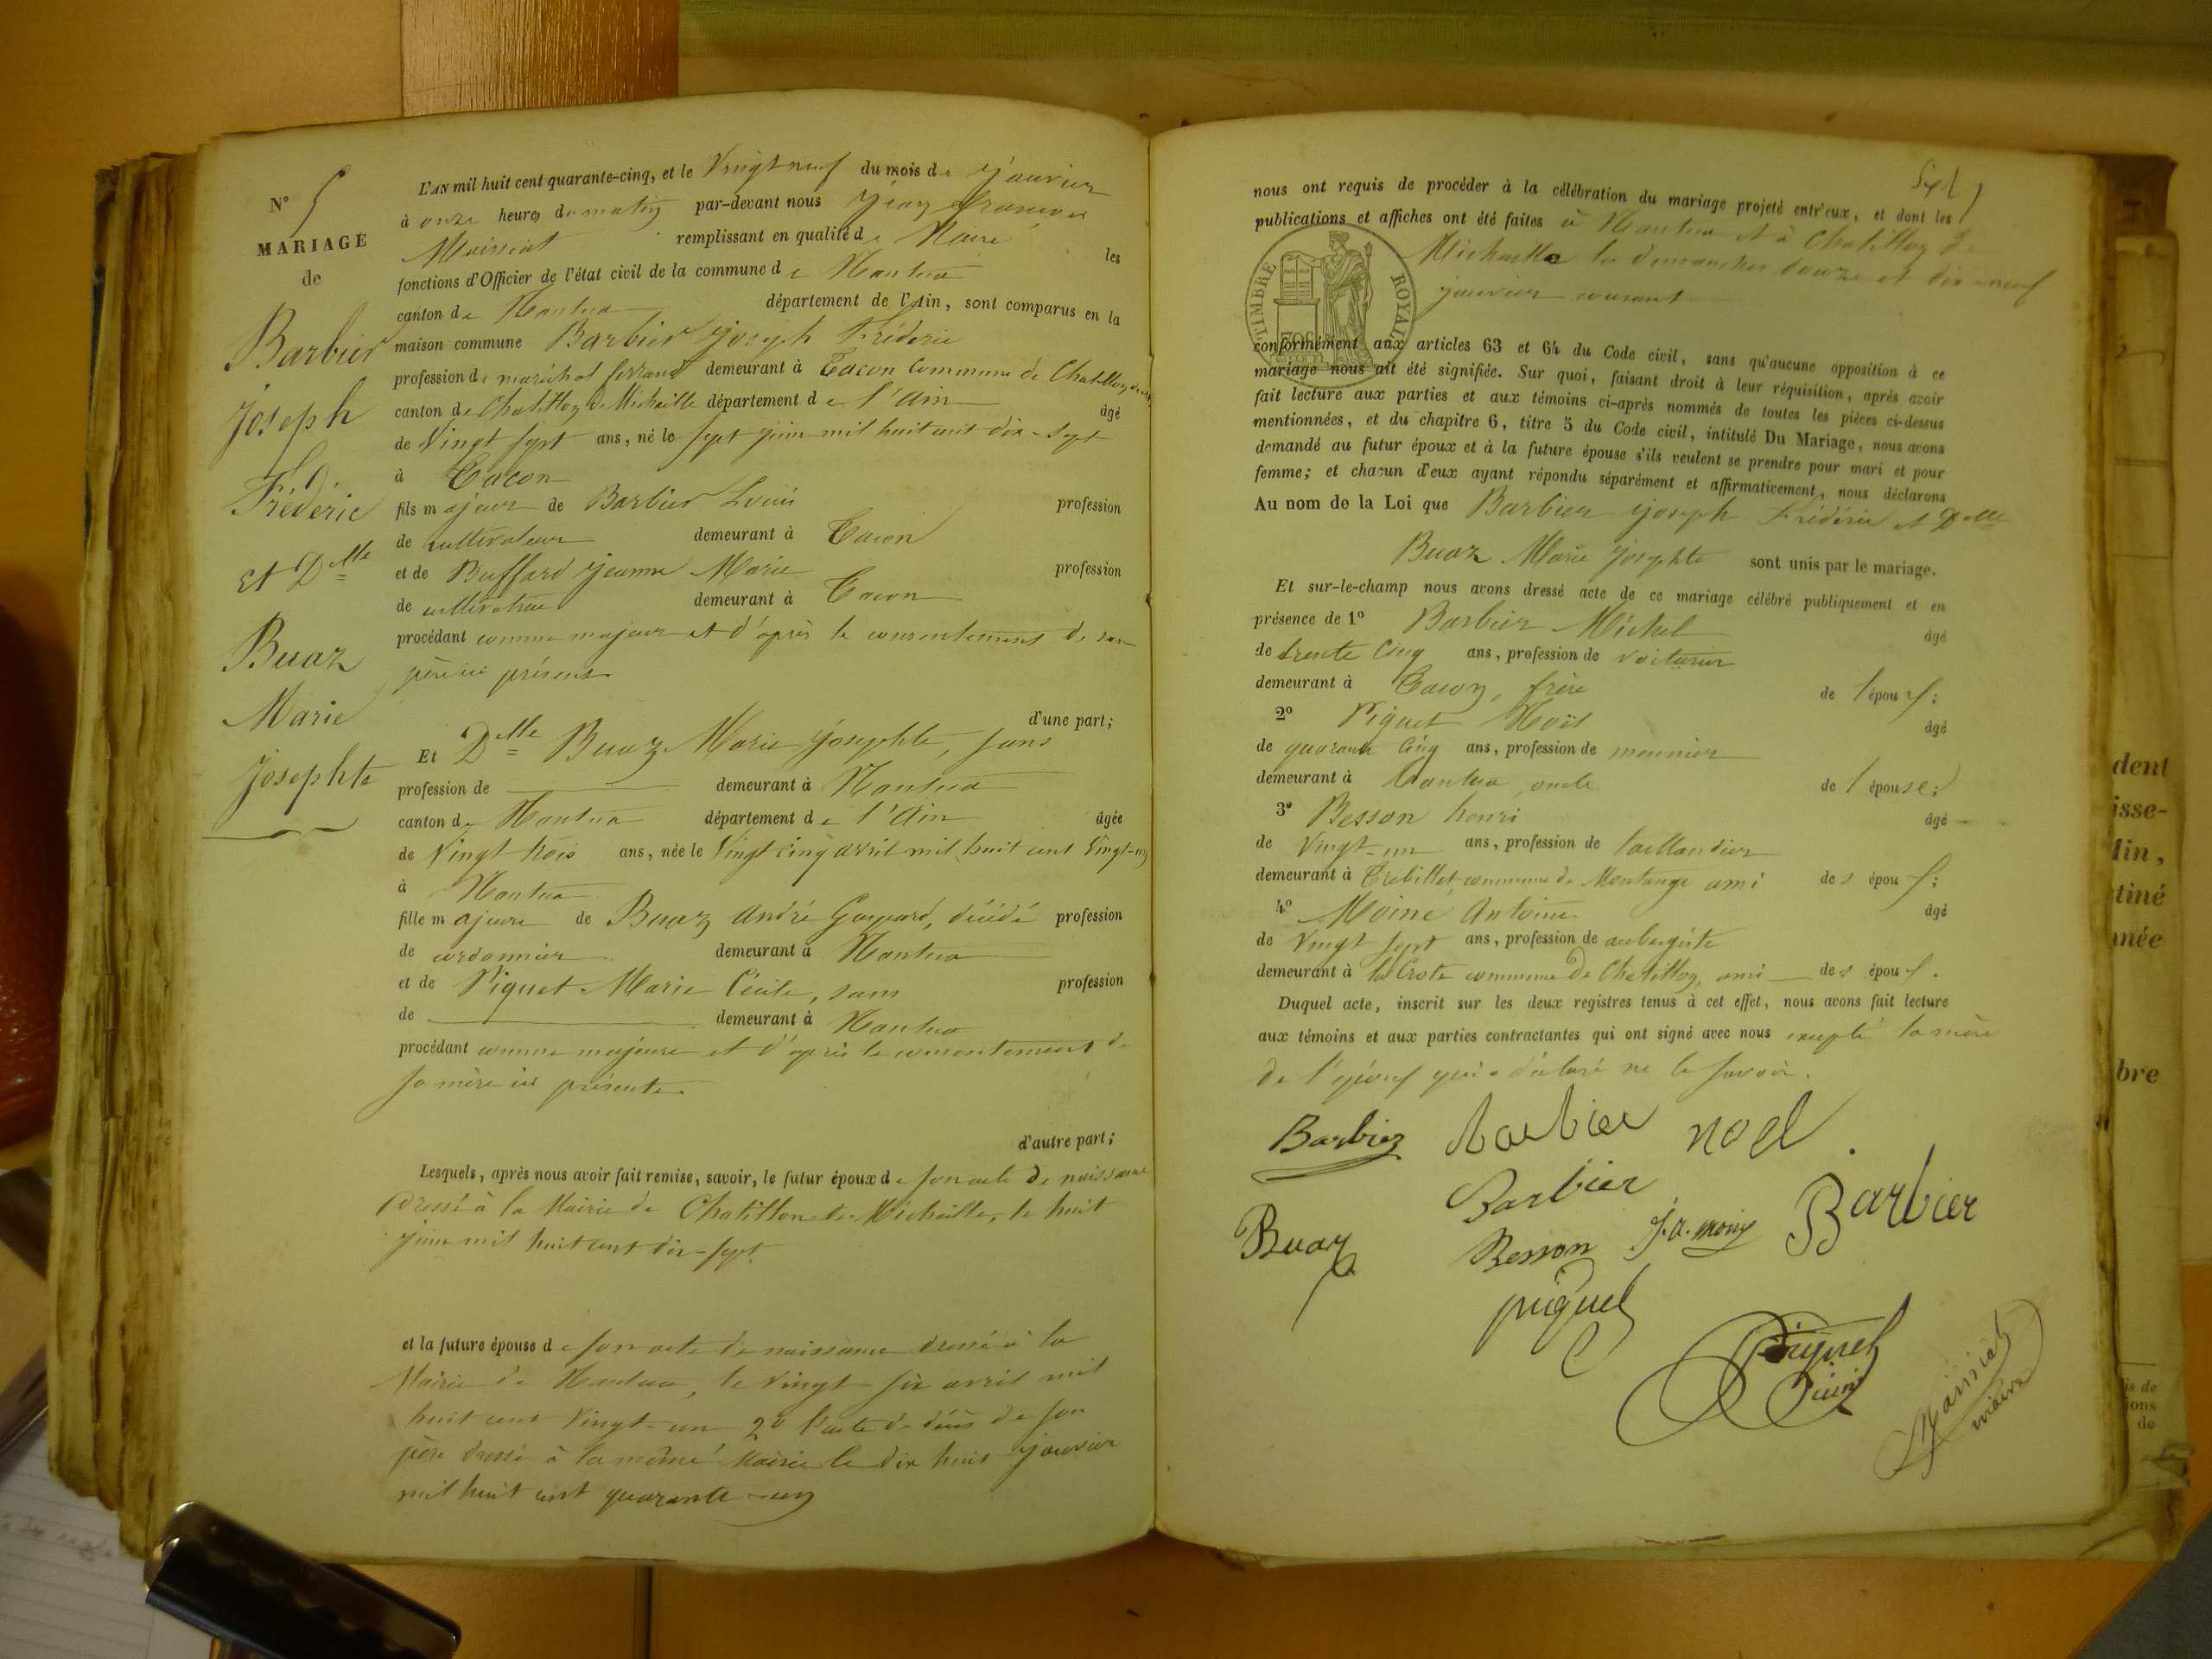 N° 5
MARIAGE
de
Barbier
Joseph
Frédéric
et Dlle
Buaz
Marie
Josephte
L'AN mil huit cent quarante-cinq, et le Vingt neuf du mois de janvier
à onze heures du matin par-devant nous Jean françois
Maissiat remplissant en qualité de Maire les
fonctions d'Officier de l'état civil de la commune de Nantua
canton de Nantua département de l'Ain, sont comparus en la
maison commune Barbier Joseph Frédéric
profession de maréchal ferrant demeurant à Tacon commune de Chatillon de
canton de Chatillon de Michaille département de l'Ain âgé
de Vingt sept ans, né le sept juin mil huit cent dix-sept
à Tacon
fils majeur de Barbier Louis profession
de cultivateur demeurant à Tacon
et de Buffard Jeanne Marie profession
de cultivatrice demeurant à Tacon
procédant comme majeur et d'après le consentement de son
père ici présent
d'une part;
Et Dlle Buaz Marie Josephte, sans
profession de demeurant à Nantua
canton de Nantua département de l'Ain âgée
de Vingt trois ans, née le Vingt cinq avril mil huit cent Vingt-un
à Nantua
fille majeure de Buaz André Gaspard, décédé profession
de cordonnier demeurant à Nantua
et de Piquet Marie Cécile, sans profession
de demeurant à Nantua
procédant comme majeure et d'après le consentement de
sa mère ici présente.
d'autre part;
Lesquels, après nous avoir fait remise, savoir, le futur époux de son acte de naissance
dressé à la Mairie de Chatillon-de-Michaille, le huit
juin mil huit cent dix-sept.
et la future épouse de son acte de naissance dressé à la
Mairie de Nantua, le Vingt six avril mil
huit cent Vingt-un 2° l'acte de décès de son
père dressé à la même Mairie le dix huit janvier
mil huit cent quarante-un
Sept
nous ont requis de procéder à la célébration du mariage projeté entr'eux, et dont les
publications et affiches ont été faites à Nantua et à Chatillon de
Michaille les dimanches douze et dix-neuf
janvier courant
TIMBRE ROYAL
conformément aux articles 63 et 64 du Code civil, sans qu'aucune opposition à ce
mariage nous ait été signifiée. Sur quoi, faisant droit à leur réquisition, après avoir
fait lecture aux parties et aux témoins ci-après nommés de toutes les pièces ci-dessus
mentionnées, et du chapitre 6, titre 5 du Code civil, intitulé Du Mariage, nous avons
demandé au futur époux et à la future épouse s'ils veulent se prendre pour mari et pour
femme; et chacun d'eux ayant répondu séparément et affirmativement, nous déclarons
Au nom de la Loi que Barbier Joseph Frédéric et Dlle
Buaz Marie Josephte sont unis par le mariage.
Et sur-le-champ nous avons dressé acte de ce mariage célébré publiquement et en
présence de 1° Barbier Michel âgé
de trente cinq ans, profession de voiturier
demeurant à Tacon, frère de l'époux;
2° Piquet Noël âgé
de quarante cinq ans, profession de meunier
demeurant à Nantua, oncle de l'épouse;
3° Besson henri âgé
de Vingt-un ans, profession de taillandier
demeurant à Trébillet commune de Montange ami des époux;
4° Moine Antoine âgé
de Vingt sept ans, profession de aubergiste
demeurant à la Crote commune de Chatillon, ami des époux.
Duquel acte, inscrit sur les deux registres tenus à cet effet, nous avons fait lecture
aux témoins et aux parties contractantes qui ont signé avec nous excepté la mère
de l'époux qui a déclaré ne le savoir.
Barbier Barbier noel
Barbier
Buaz Besson J. A. moine Barbier
piquet
Piquet
Maissiat
maire
dent
isse-
Ain,
tiné
nnée
bre
is de
ions
de